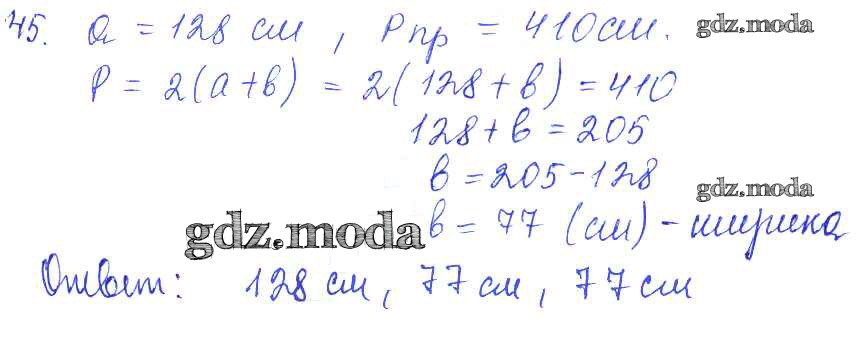 45. a = 128 см, Pпр = 410 см. gdz.moda
P = 2(a+b) = 2(128+b) = 410
128+b = 205
b = 205-128
gdz.moda
gdz.moda b = 77 (см) - ширина
Ответ: 128 см, 77 см, 77 см